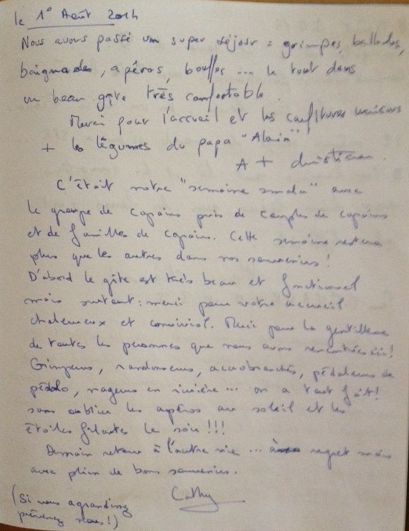 le 1° Août 2014
Nous avons passé un super séjour : grimpe, ballades,
baignades, apéros, bouffes ... le tout dans
un beau gîte très confortable.
Merci pour l'accueil et les confitures maisons
+ les légumes du papa "Alain"
A +
C'était notre "semaine" avec
le groupe de copains près de couples de copains
et de familles de copains. Cette semaine restera
plus que les autres dans nos souvenirs !
D'abord le gîte est très beau et fonctionnel
mais surtout : merci pour votre accueil
chaleureux et convivial. Merci pour la gentillesse
de toutes les personnes que nous avons rencontrées ici !
Grimpeurs, randonneurs, accrobranchés, pédaleurs de
pédalo, nageurs en rivière ... on a tout fait !
sans oublier les apéros au soleil et les
étoiles filantes le soir !!!
Demain retour à l'autre vie ... regret mais
avec plein de bons souvenirs.
Cathy
(Si vous agrandissez
prévenez nous !)